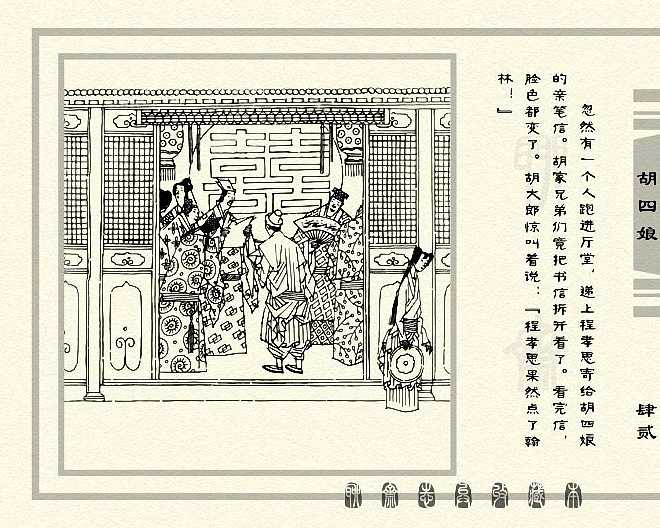 忽然有一个人跑进厅堂，递上程孝思寄给胡四娘
的亲笔信。胡家兄弟们竟把书信拆开看了。看完信，
脸色都变了。胡大郎惊叫着说：『程孝思果然点了翰
林！』
胡四娘
肆贰
囍